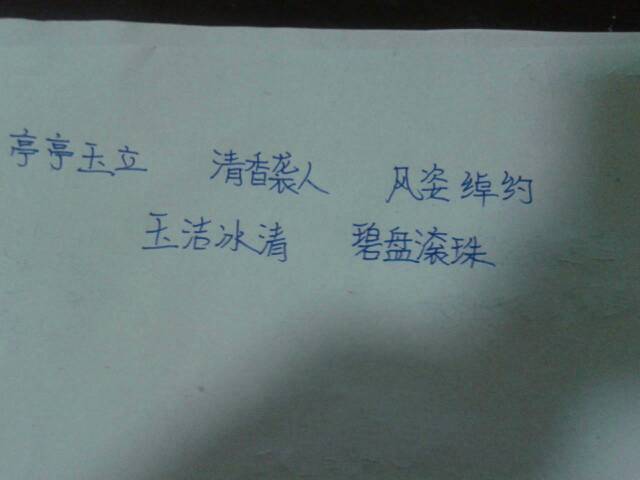 亭亭玉立 清香袭人 风姿绰约
玉洁冰清 碧盘滚珠